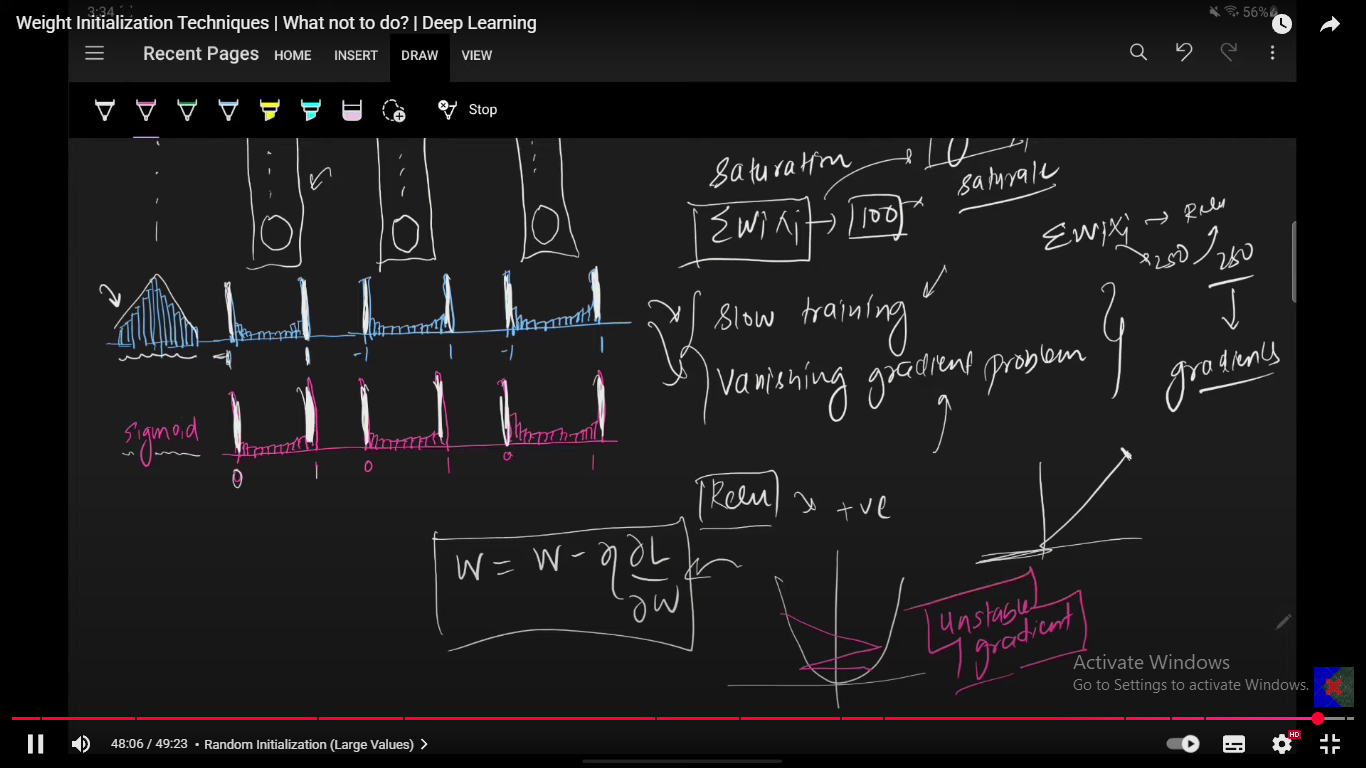 3:34
56%
Weight Initialization Techniques | What not to do? | Deep Learning
Recent Pages HOME INSERT DRAW VIEW
Stop
Saturation
saturate
ΣWiXi → 100
ΣWiXi → Relu
250
250
gradients
slow training
Vanishing gradient problem
-1 1 -1 1 -1 1
sigmoid
0 1 0 1 0 1
Relu +ve
W = W - η ∂L/∂W
Unstable
gradient
Activate Windows
Go to Settings to activate Windows.
48:06 / 49:23 • Random Initialization (Large Values)
HD